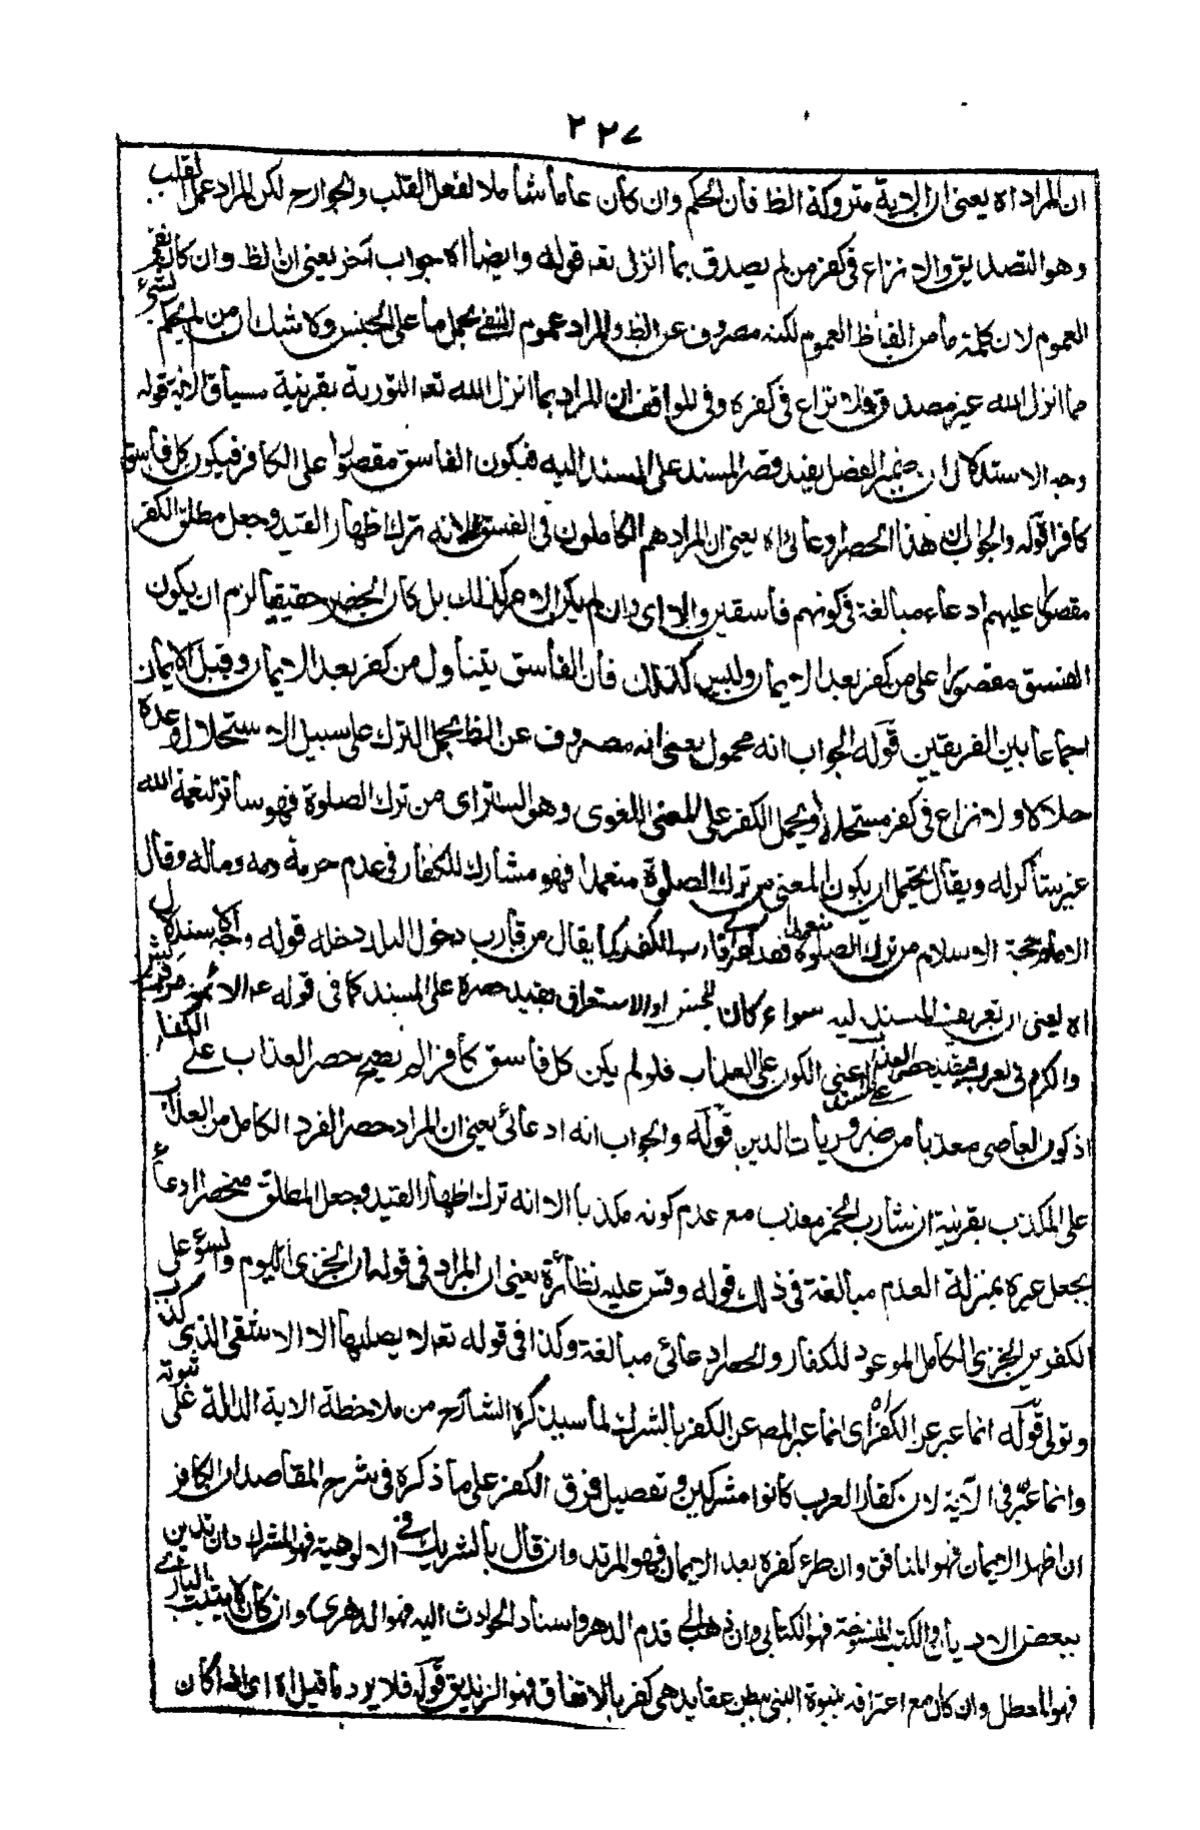 ٢٢٧
ان المراد اه يعنى ان الاية متروكة الظ فان الحكم وان كان عاما شاملا لفعل القلب والجوارح لكن المراد عمل القلب
وهو التصديق ولا نزاع فى كفر من لم يصدق بما انزل الله تعه قوله وايضا اه جواب آخر يعنى ان الظ وان كان نفى
العموم لان كلمة ما من الفاظ العموم لكنه مصروف عن الظ والمراد عموم النفى بحمل ما على الجنس ولا شك ان من لم يحكم بشىء
مما انزل الله غير مصدق ولا نزاع فى كفره وفى المواقف ان المراد بما انزل الله تعه التورية بقرينة سياق الاية قوله
وجه الاستدلال ان ضمير الفصل يفيد قصر المسند على المسند اليه فيكون الفاسق مقصورا على الكافر فيكون كل فاسق
كافرا قوله والجواب ان هذا الحصر ادعائى اه يعنى ان المراد هم الكاملون فى الفسق الا انه ترك اظهار القيد وجعل مطلق الكفر
مقصورا عليهم ادعاء مبالغة فى كونهم فاسقين والا اى وان لم يكن الامر كذلك بل كان الحصر حقيقيا لزم ان يكون
الفسق مقصورا على من كفر بعد الايمان وليس كذلك فان الفاسق يتناول من كفر بعد الايمان وقبل الايمان
اجماعا بين الفريقين قوله الجواب انه محمول يعنى انه مصروف عن الظ بحمل الترك على سبيل الاستحلال وعده
حلالا ولا نزاع فى كفر مستحله او بحمل الكفر على المعنى اللغوى وهو الستر اى من ترك الصلوة فهو ساتر لنعمة الله
غير شاكر له ويقال يحتمل ان يكون المعنى من ترك الصلوة متعمدا فهو مشارك للكفار فى عدم حرمة دمه وماله وقال
الامام حجة الاسلام من ترك الصلوة متعمدا فقد كفر اى قارب الكفر كما يقال من قارب دخول البلد دخله قوله وجه الاستدلال
اه يعنى ان تعريف المسند اليه سواء كان للجنس او الاستغراق يفيد حصره على المسند كما فى قوله عم الائمة من قريش
والكرم فى العرب فيفيد حصر العذاب على المسند اعنى الكون على المكذب فلو لم يكن كل فاسق كافرا لم يصح حصر العذاب على الكفار
اذ كون العاصى معذبا من ضروريات الدين قوله والجواب انه ادعائى يعنى ان المراد حصر الفرد الكامل من العذاب
على المكذب بقرينة ان شارب الخمر معذب مع عدم كونه مكذبا الا انه ترك اظهار القيد وجعل المطلق منحصرا ادعاء
بجعل غيره بمنزلة العدم مبالغة فى ذلك قوله وقس عليه نظائره يعنى ان المراد فى قوله ان الخزى اليوم والسوء على
الكفرين الخزى الكامل الموعود للكفار والحصر ادعائى مبالغة وكذا فى قوله تعه لا يصليها الا الاشقى الذى كذب
وتولى قوله انما عبر عن الكفر اه اى انما عبر المص عن الكفر بالشرك لما سيذكره الشارح من ملاحظة الاية الدالة على ثبوته
وانما عبر فى الآية لان كفار العرب كانوا مشركين وتفصيل فرق الكفر على ما ذكره فى شرح المقاصد ان الكافر
ان اظهر الايمان فهو المنافق وان طرء كفره بعد الايمان فهو المرتد وان قال بالشريك فى الالوهية فهو المشرك وان تدين
ببعض الاديان والكتب المنسوخة فهو الكتابى وان ذهب الى قدم الدهر واسناد الحوادث اليه فهو الدهرى وان كان لا يثبت البارى
فهو المعطل وان كان مع اعترافه بنبوة النبى يبطن عقايد هى كفر بالاتفاق فهو الزنديق قوله فلا يرد ما قيل اه اى اذا كان